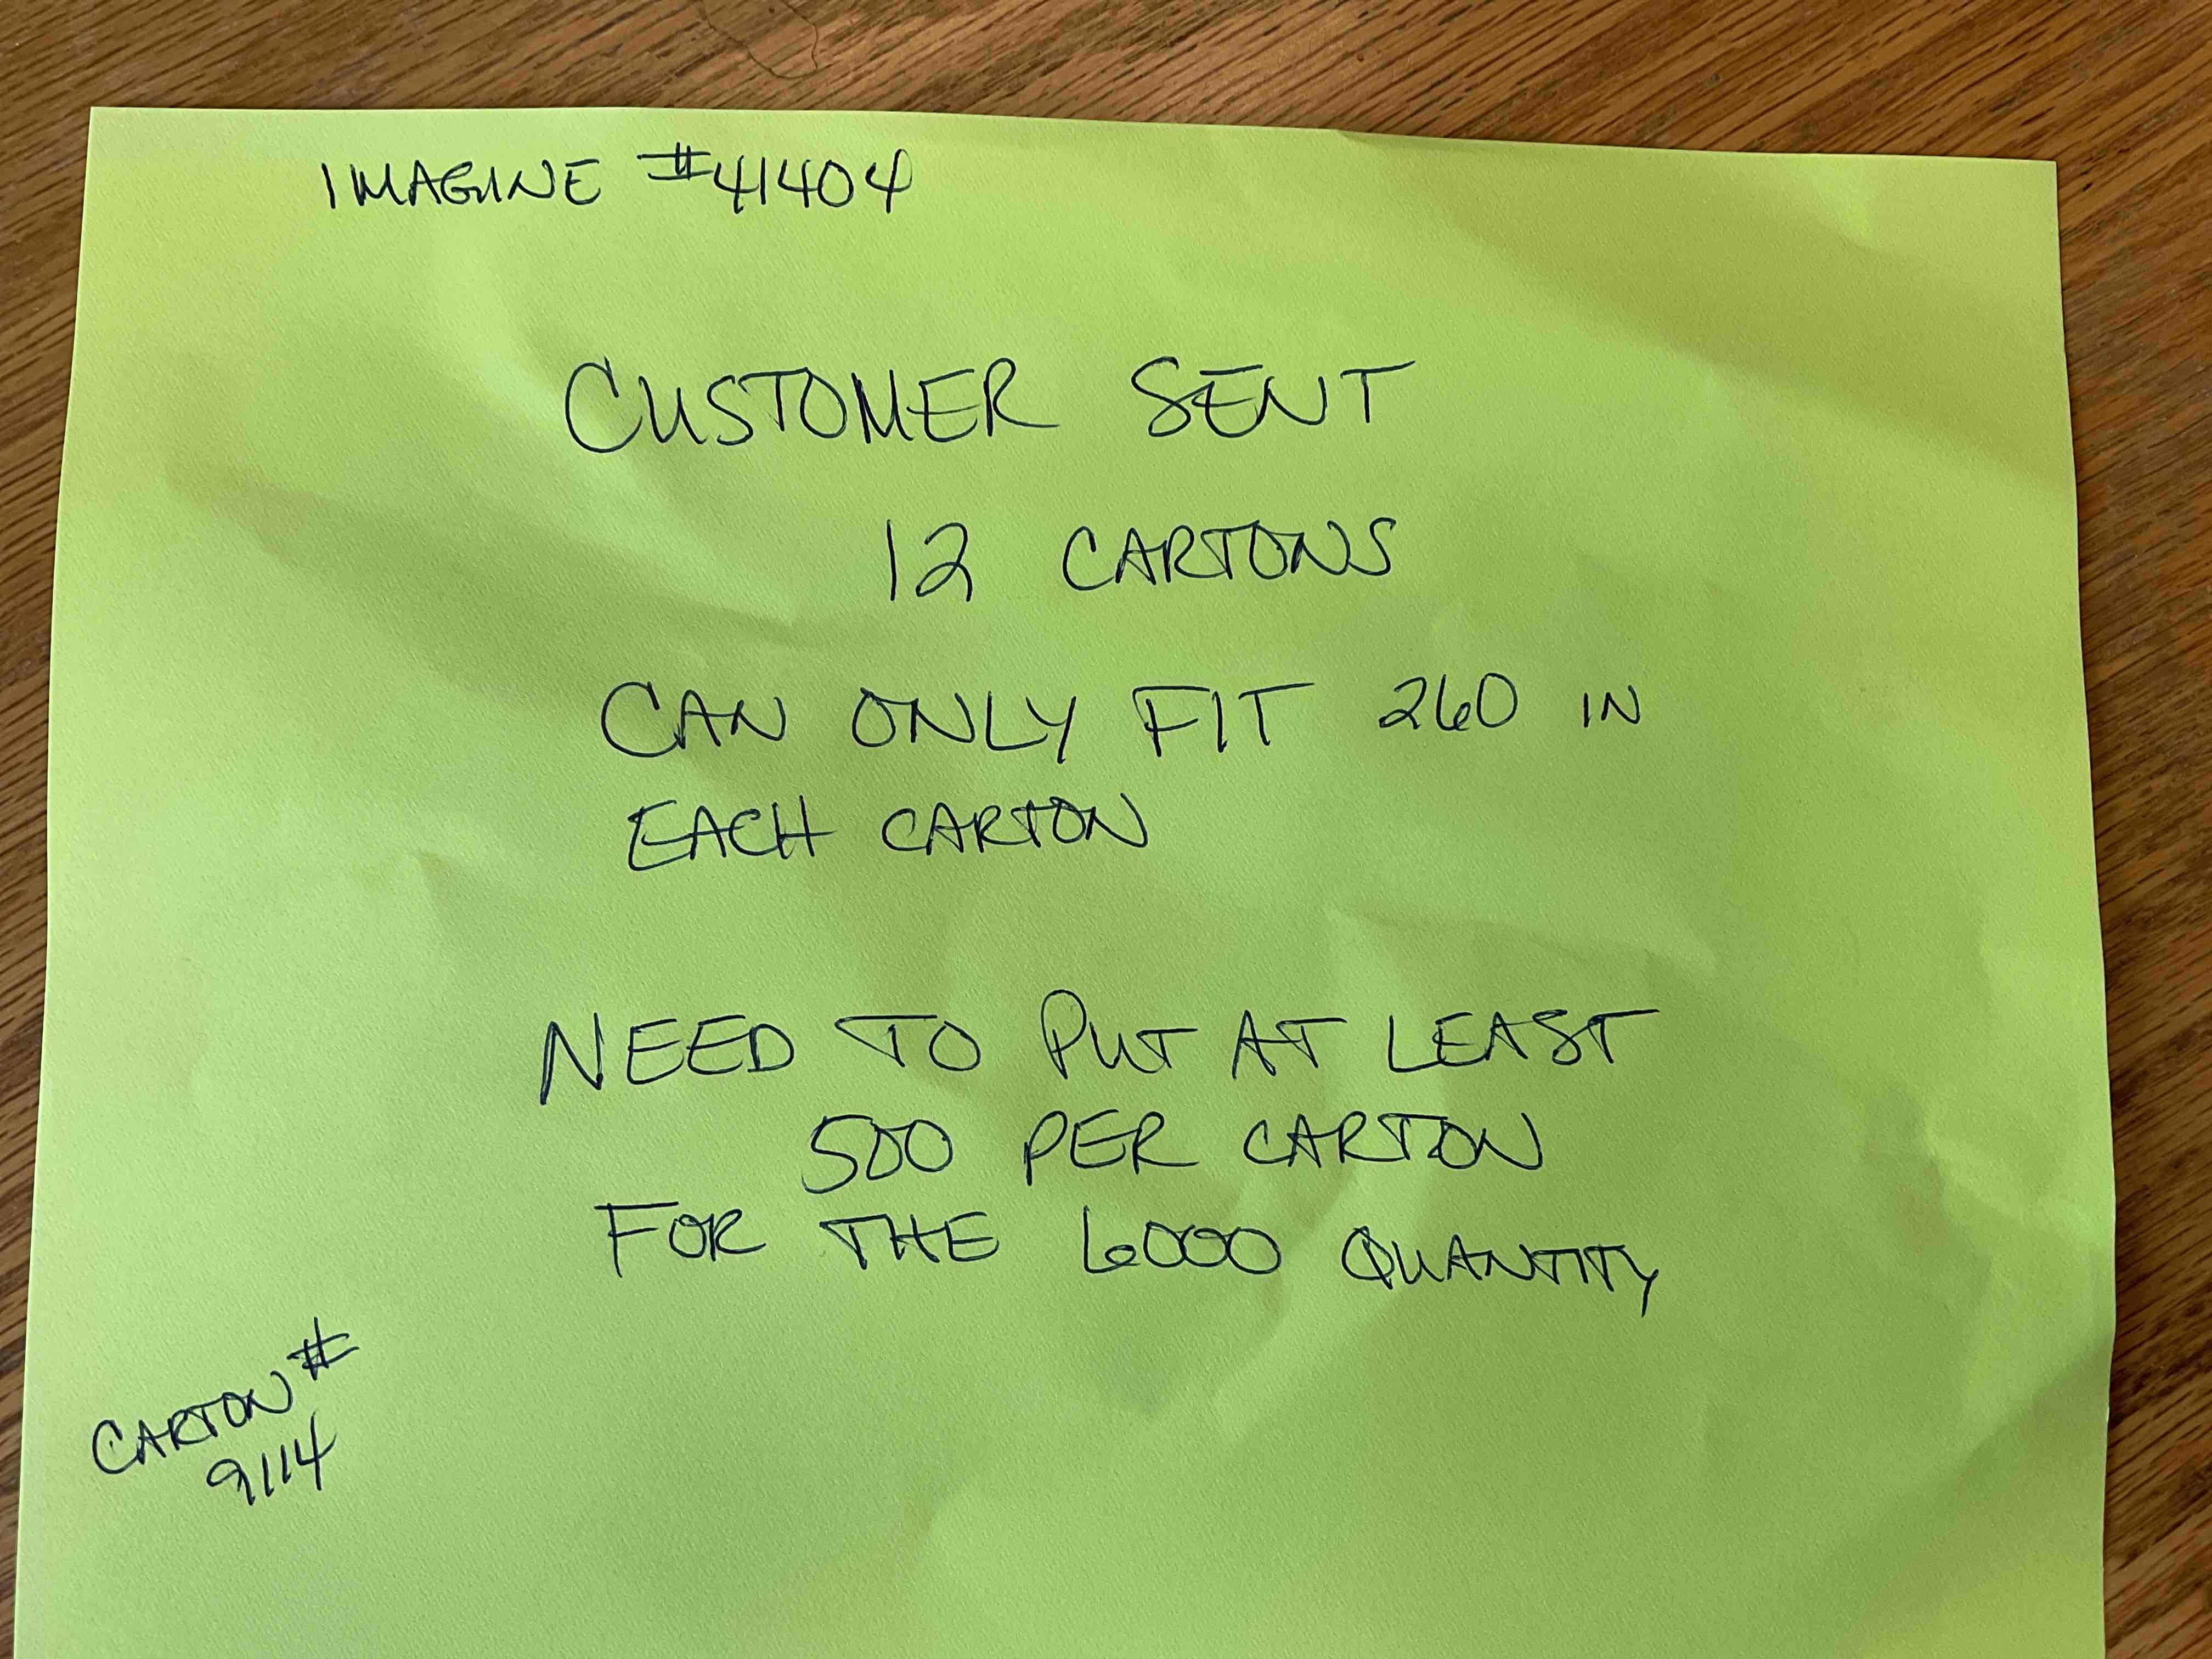 IMAGINE #41404
CUSTOMER SENT
12 CARTONS
CAN ONLY FIT 260 IN
EACH CARTON
NEED TO PUT AT LEAST
500 PER CARTON
FOR THE 6000 QUANTITY
CARTON #
9114